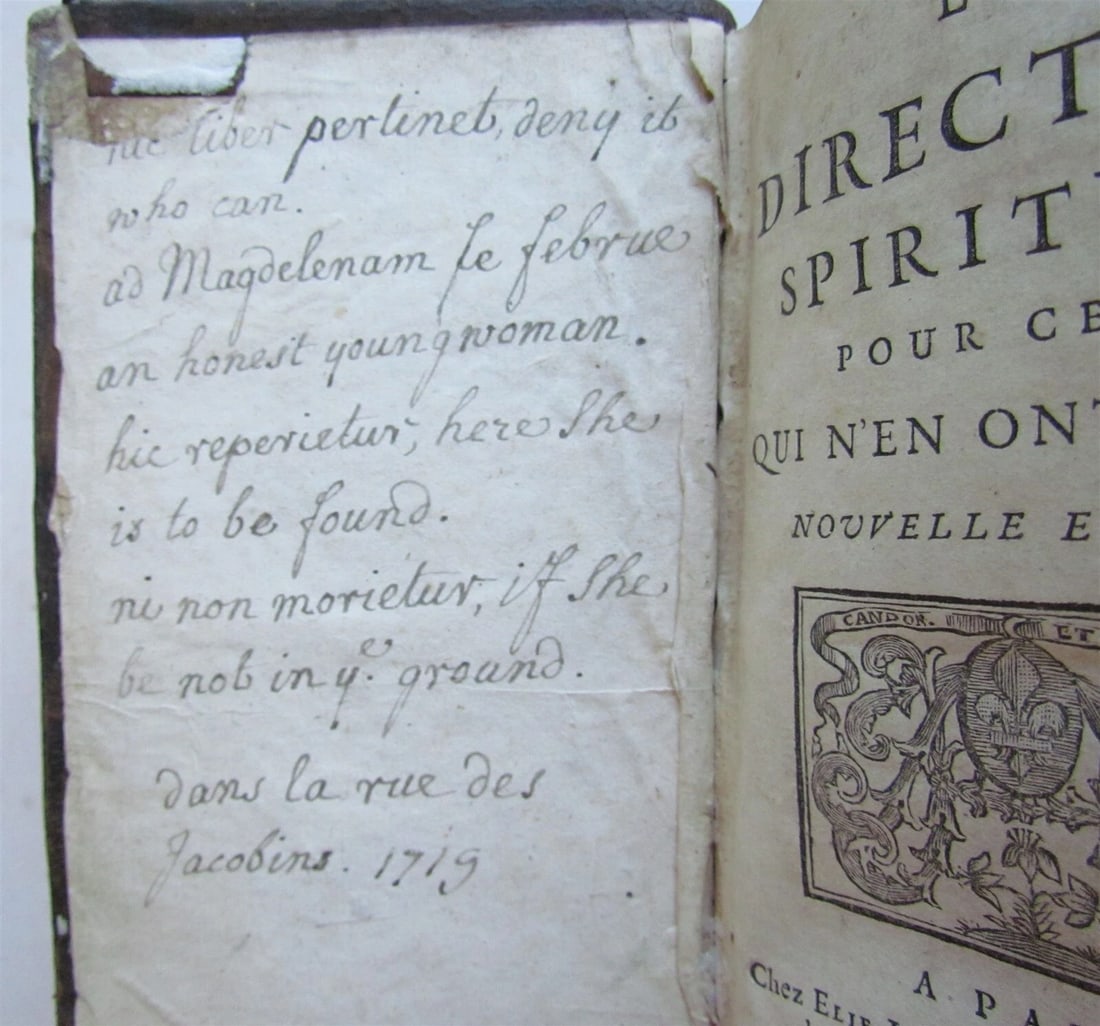 hic liber pertinet, deny it
who can.
ad Magdelenam le februe
an honest young woman.
hic reperietur, here She
is to be found.
ni non morietur, if She
be not in yᵉ. ground.
dans la rue des
Jacobins. 1719
DIRECT
SPIRIT
POUR CE
QUI N'EN ONT
NOUVELLE E
CANDOR. ET
A PA
Chez ELIE